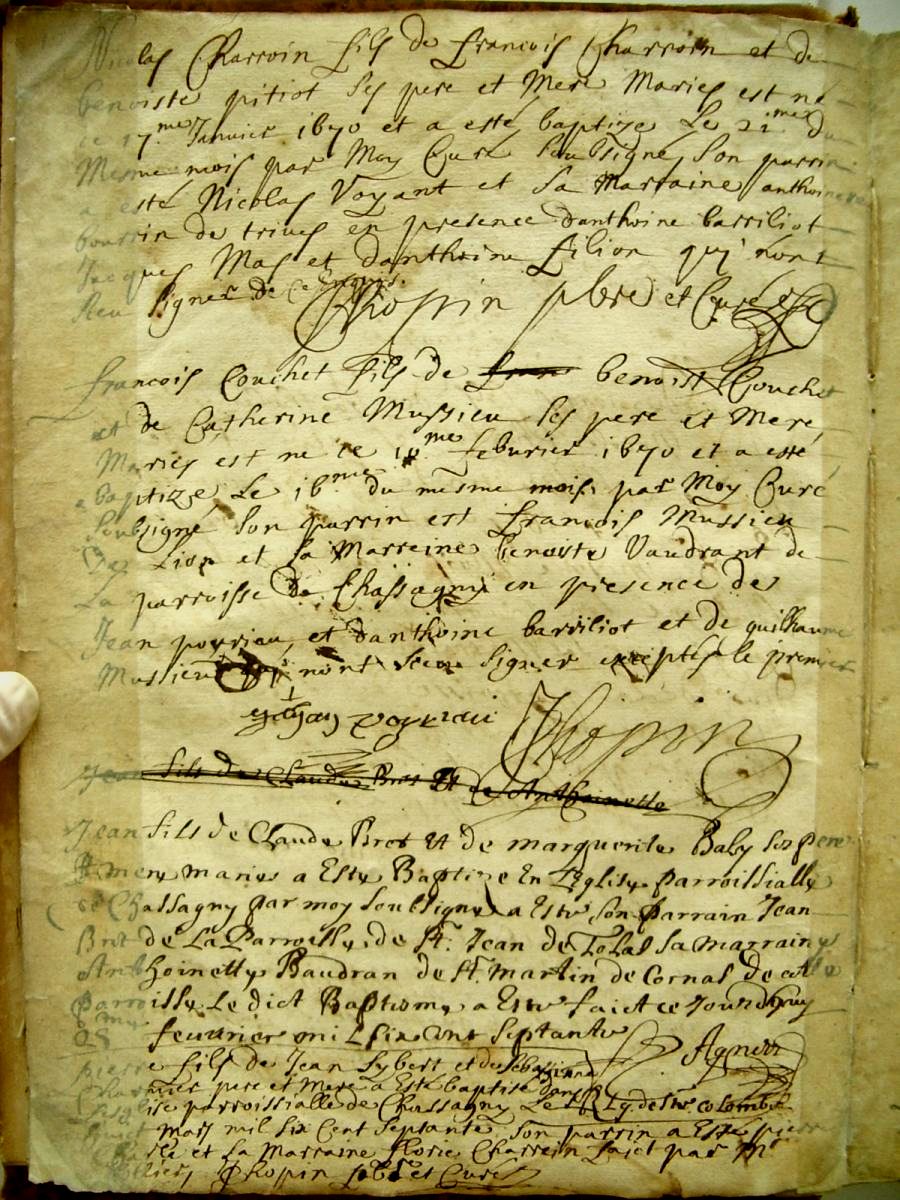 Nicolas Charroin fils de francois Charroin et de
benoiste pitiot ses pere et Mere Mariés est né
ce 17.me Janvier 1670 et a esté baptize Le 22.me du
Mesme mois par Moy Curé soubsigné, son parrin
a esté Nicolas Voyant et sa Marraine anthoinette
bourrin de trives en presence danthoine barriliot
Jacques Mas et danthoine filion qui nont
sceu signer de ce enquis.
Chopin pbre et Curé
francois Couchet fils de benoist Couchet
et de Catherine Mussieu ses pere et Mere
Mariés est né ce 10.me feburier 1670 et a esté
baptize, Le 16.me du mesme mois par Moy Curé
soubsigné son parrin est francois Mussieu
Lion et sa Marreine benoiste Vaudrant de
La parroisse de Chassagny en presence des
Jean poyriau, et danthoine barriliot et de guilhaume
Mussieu qui nont sceu signer exceptés le premier
Chopin
Jean fils de Claude Brot Et de Anthoinette
Jean fils de Claude Brot Et de marguerite Baby ses pere
Et mere maries a Este Baptize En Leglise parroissialle
de Chassagny par moy soubsigne a Este son parrain Jean
Brot de La Parroisse de St. Jean de Tolas sa marraine
Anthoinette Baudran de St. martin de Cornas de
parroisse Le dict Baptesme a Este faict ce Jourdhuy
feuvrier mil six cent septante Agneu
pierre fils de Jean Sybert et de Sebastienne
pere et Mere a Esté baptisé dans
Leglise parroissialle de Chassagny Le de Ste colombe
Mars mil six Cent septante son parrin a Esté pierre
et La Marraine florie Charrein faict par Mr
Chopin pbre et Curé